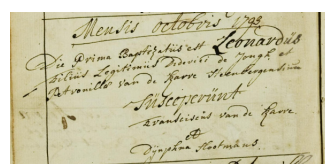 Mensis octobris 1793
Die Prima Baptizatus est Leonardus
filius Legitimus Diderici de Jongh et
Petronilla van de Karre Steenbergensium
Susceperunt
Franciscus van de Karre
et
Dijmphna Hootmans